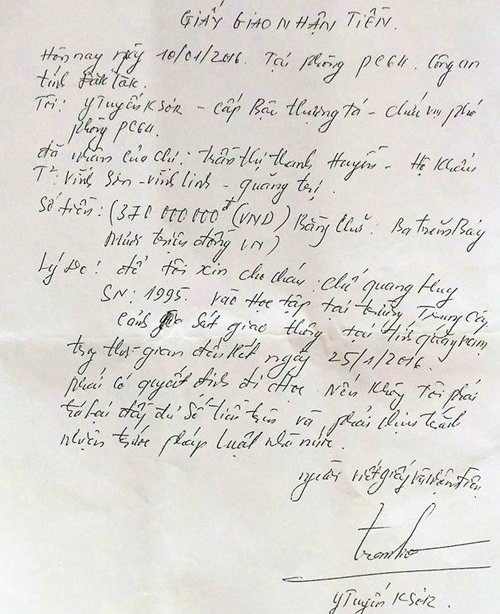 GIẤY GIAO NHẬN TIỀN.
Hôm nay ngày 10/01/2016. Tại phòng PC64. Công an
tỉnh Đắk Lắk.
Tôi: Y Tuyến KSơR - cấp Bậc thượng tá - chức vụ phó
phòng PC64.
đã nhận của chị: Trần thị thanh Huyền - Hộ Khẩu
T²: Vĩnh Sơn - vĩnh linh - quảng trị.
Số tiền: (370 000 000đ (VND) Bằng chữ: Ba trăm Bảy
Mươi triệu đồng VN)
Lý do: để tôi xin cho cháu: chế quang Huy
SN: 1995. vào học tập tại trường Trung Cấp
cảnh sát giao thông tại
trong thời gian đến hết ngày 25/1/2016.
phải có quyết định đi học. Nếu không tôi phải
trả lại đầy đủ số tiền trên và phải chịu trách
nhiệm trước pháp luật nhà nước.
người viết giấy và nhận tiền
Y Tuyến KSơR.